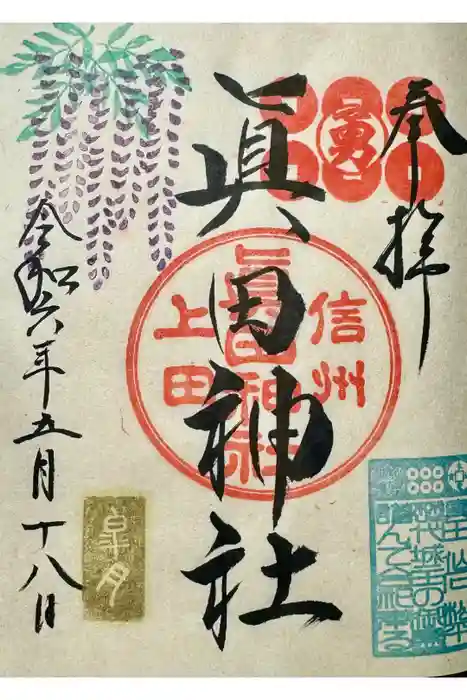 奉拝
勇
眞田神社
信州
上田
眞田神社
令和六年五月十八日
皐月